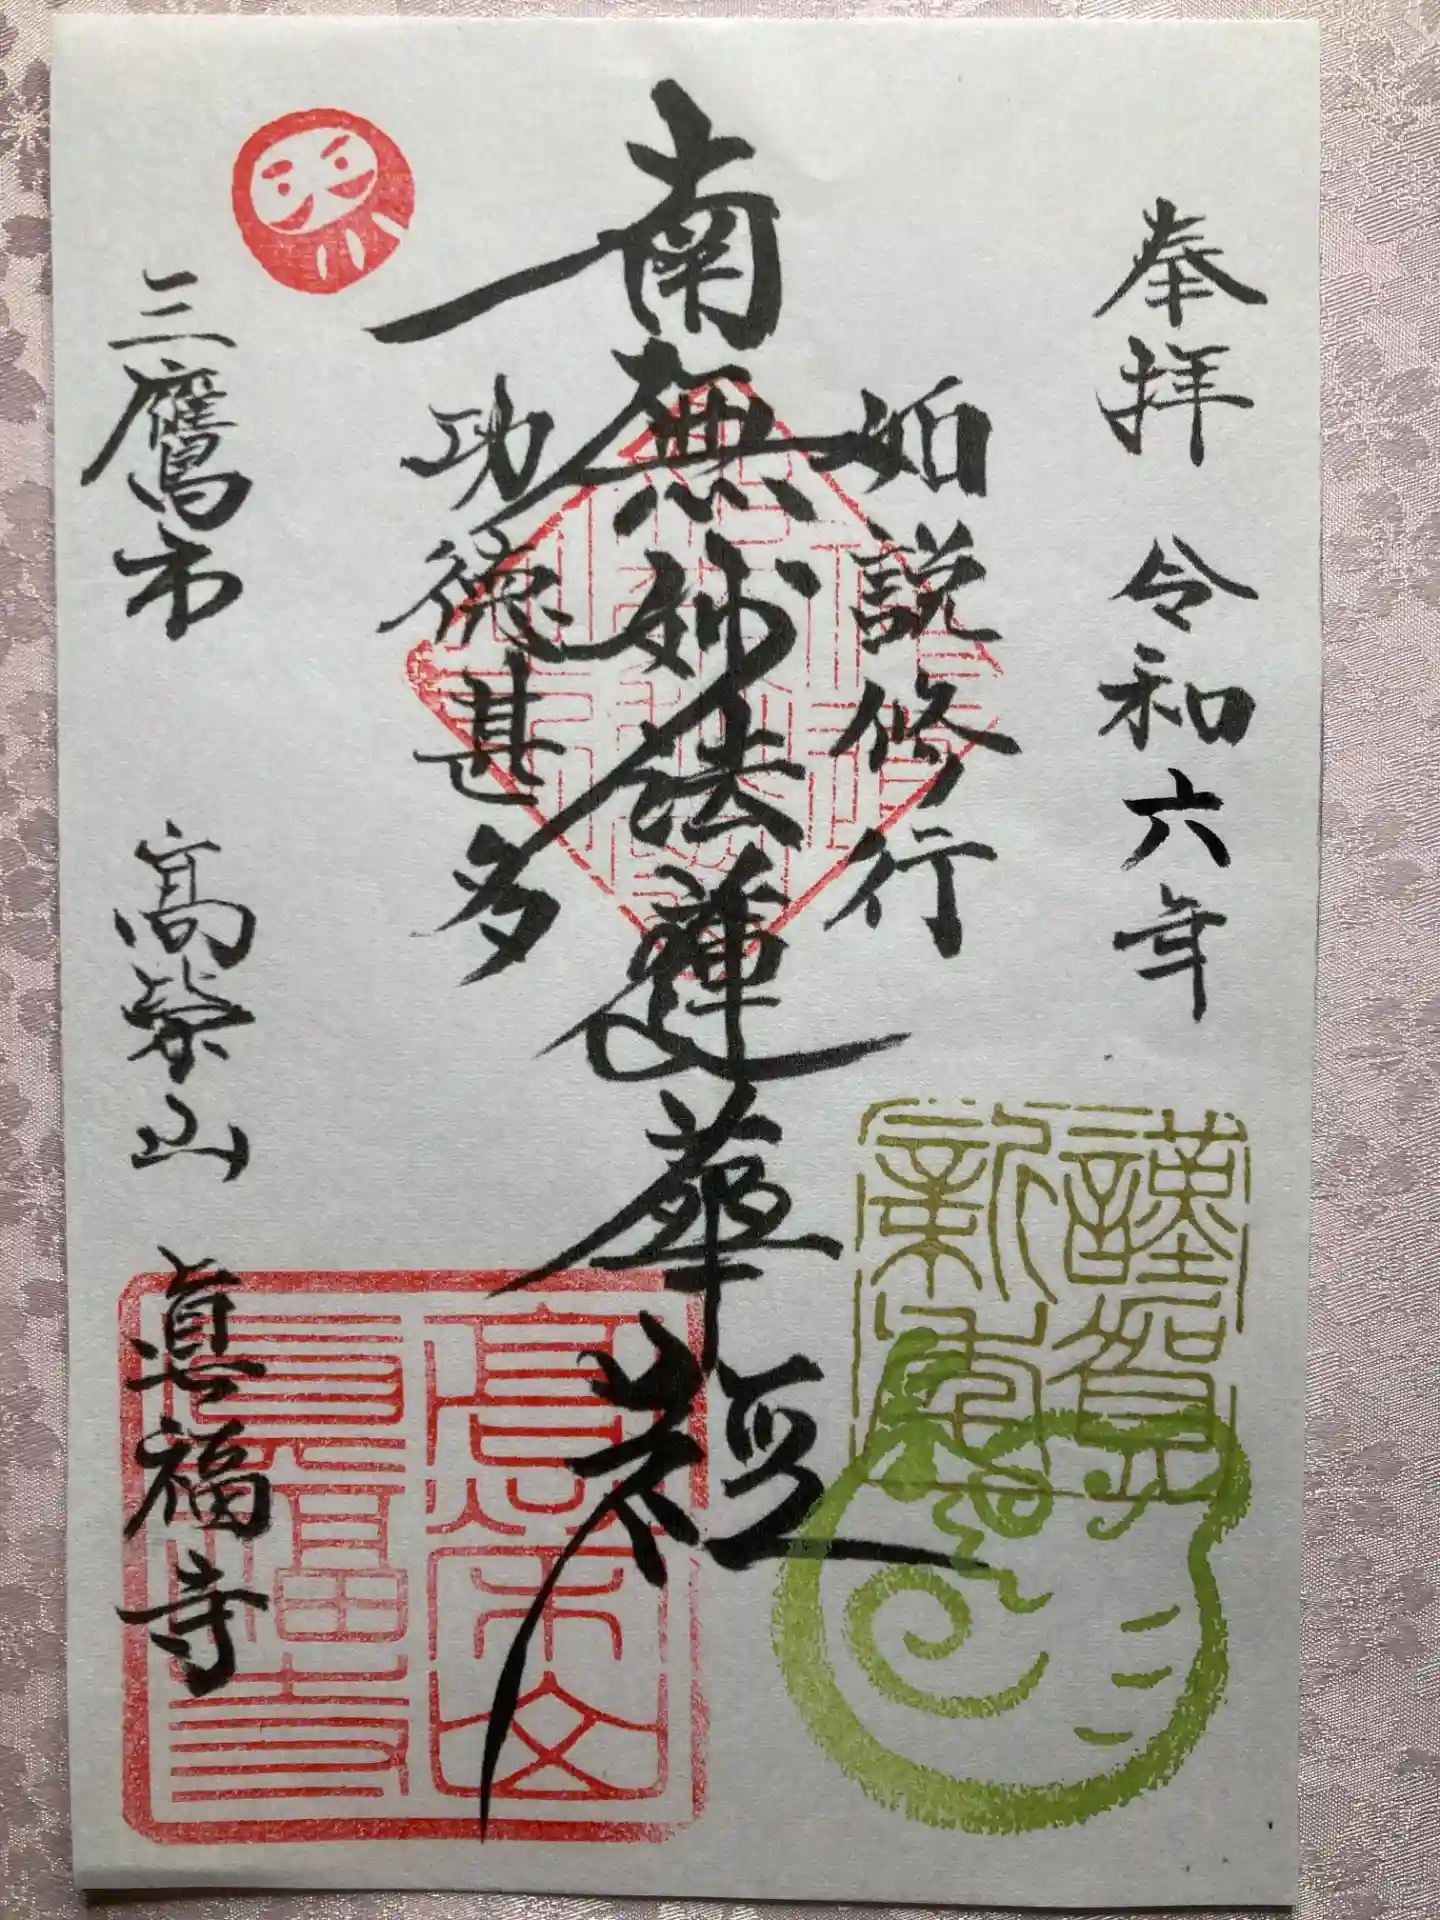 奉拝 令和六年
如説修行
南無妙法蓮華経
功徳甚多
三鷹市 高栄山 眞福寺
謹賀
新年